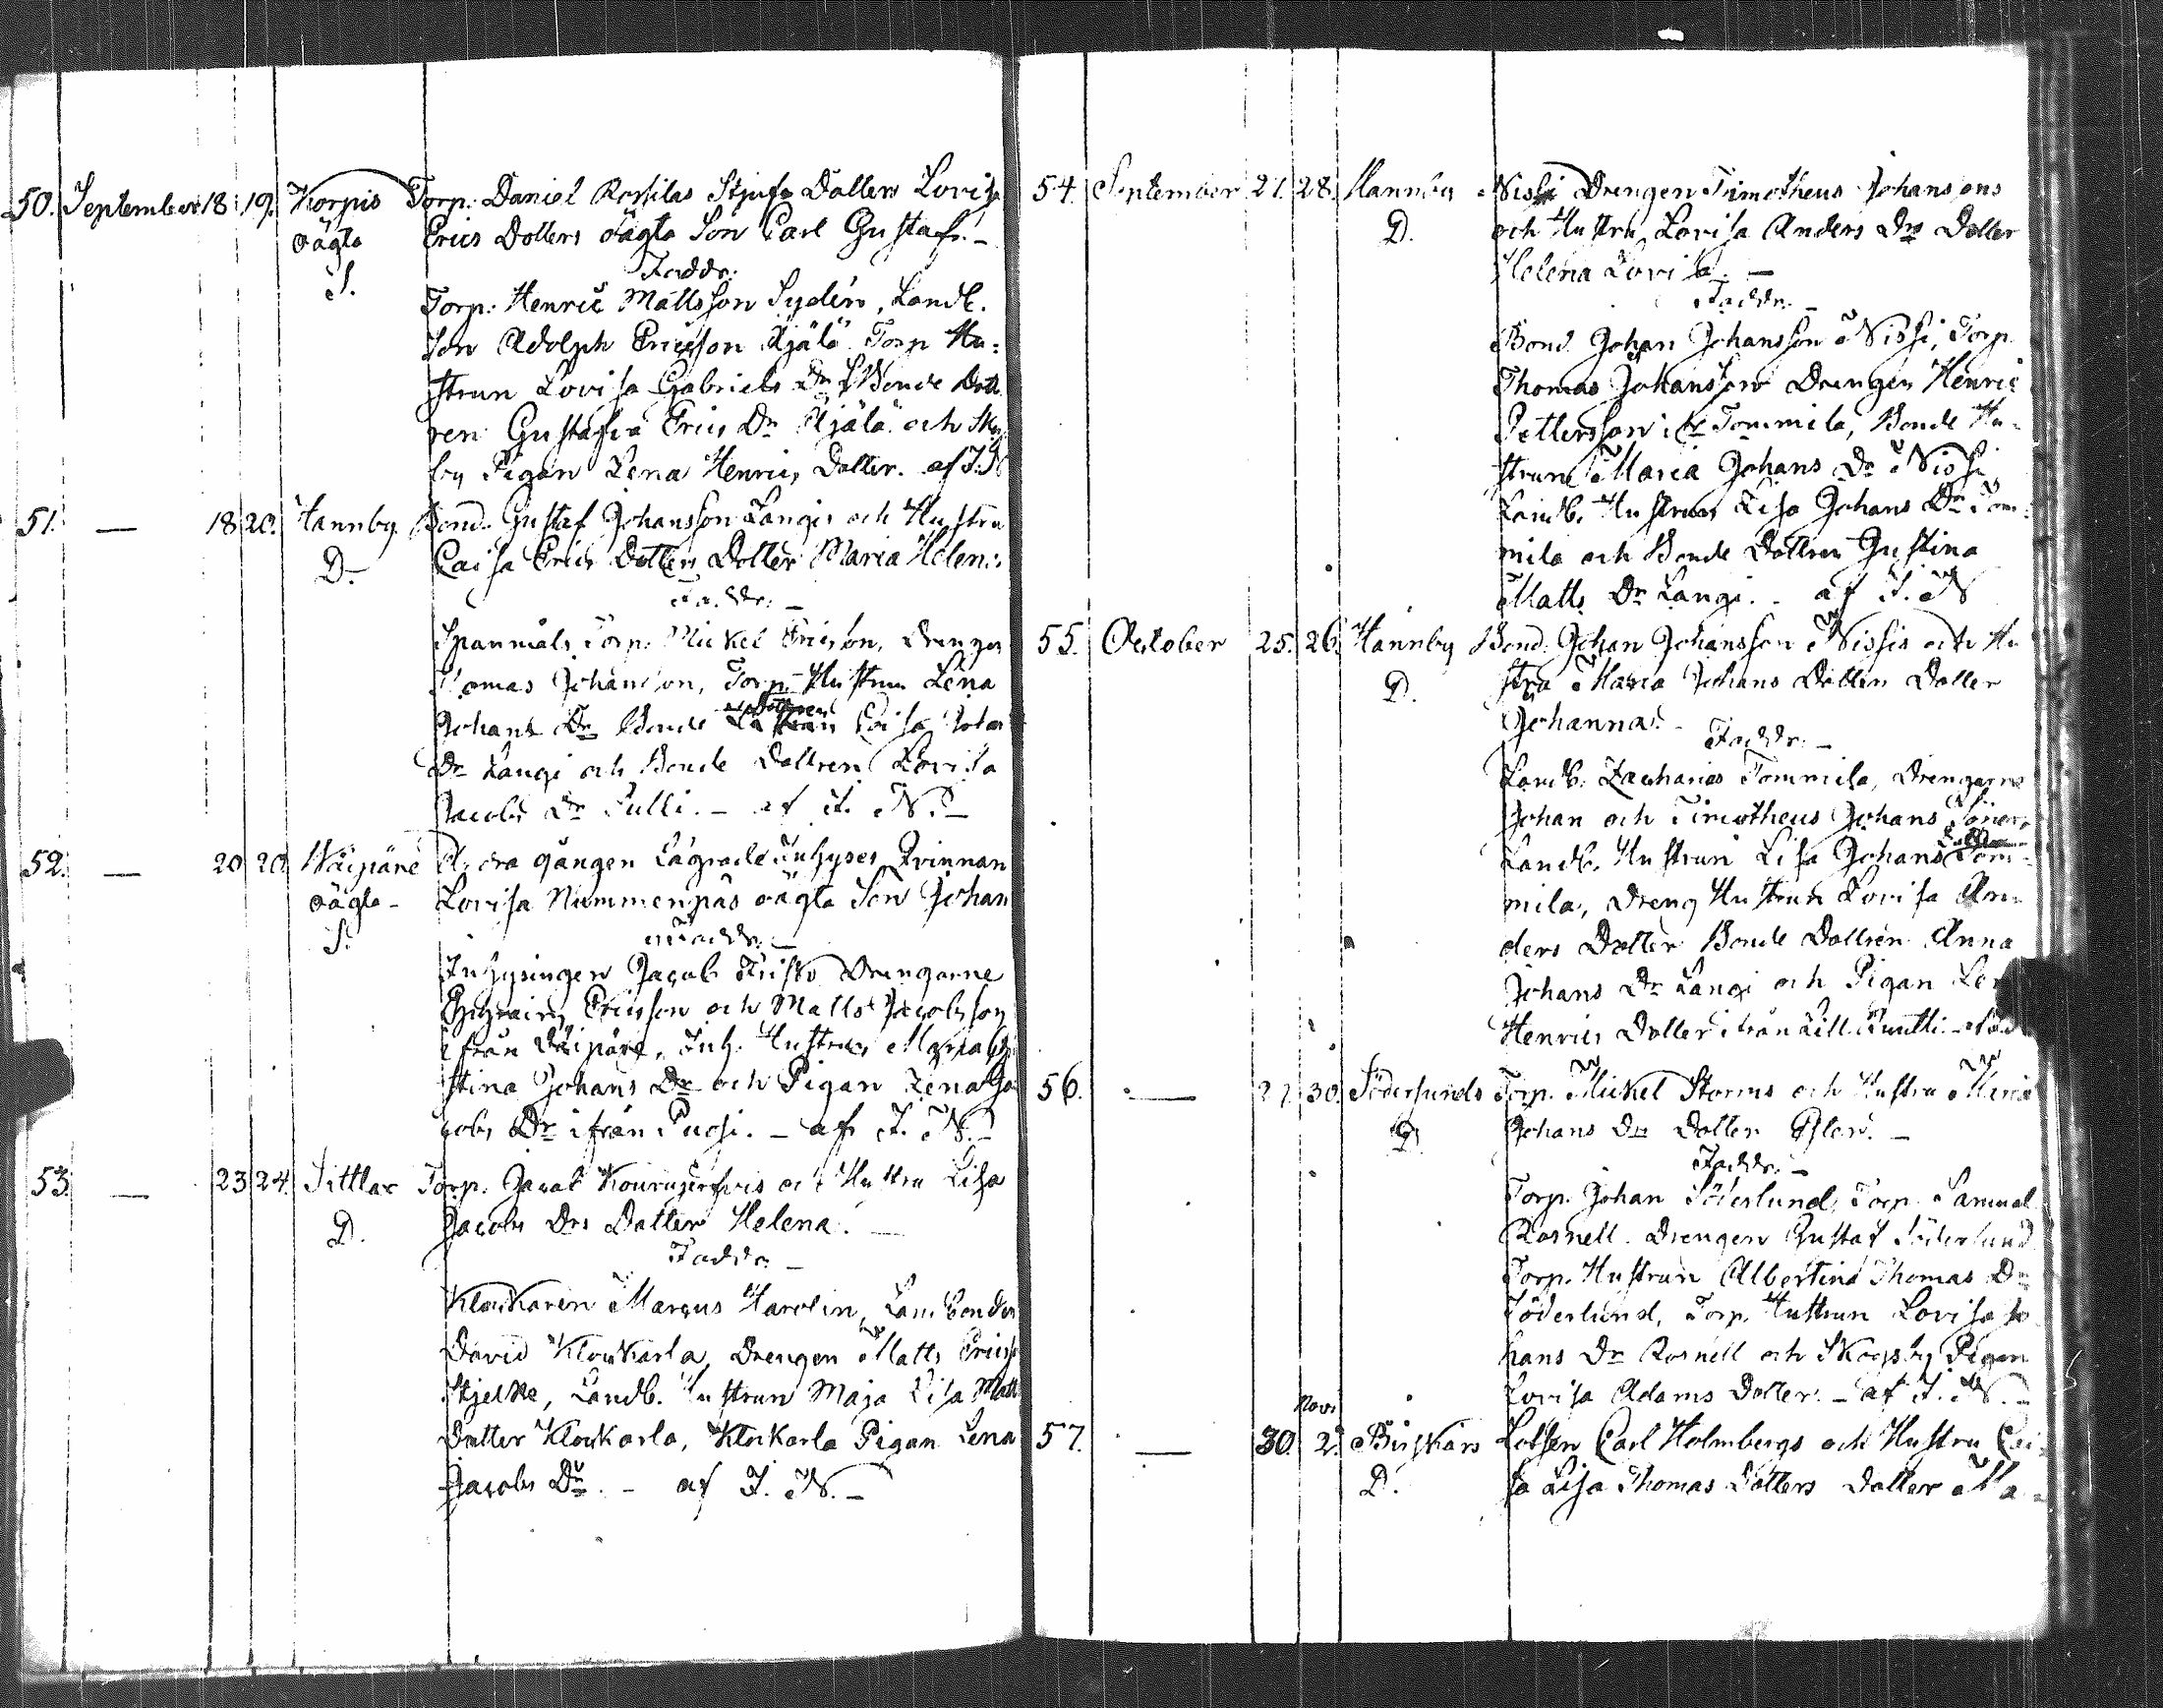 50. September 18 19. Korpis Torp. Daniel Rossilas Stjuf Dotters Lovisa
oägta Erics Dotters oägta Son Carl Gustaf. –
S. Faddr:
Torp. Henric Mattsson Sydén, Landb.
Son Adolph Ericsson Kjälä Torp Hu-
strun Lovisa Gabriels Dr Bonde Dott
ren Gustafva Erics Dr Kjälä och
by Pigan Lena Henrics Dotter. af J. N
51. — 18 20. Hannby Bond. Gustaf Johansson Långis och Hustru
D. Caisa Erics Dotters Dotter Maria Helen:
Faddr: –
Spannmåls Torp. Mickel Ericson, Drengen
Tomas Johansson, Torp. Hustrun Lena
Johans Dr Bonde Dottren Caisa Johan
Dr Långi och Bonde Dottren Lovisa
Jacobs Dr Pulli. – af J. N. –
52. — 20 20 Wäipäre Andra gången Lägrade Inhyses Qvinnan
oägta – Lovisa Nummenpäs oägta Son Johan
S. Faddr: –
Inhysingen Jacob Drengarne
Ephraim Ericsson och Matts Jacobsson
ifrån Wäipäre, Inh. Hustrun Maria
stina Johans Dr och Pigan Lena Ja
cobs Dr ifrån Puosi. – af J. N. –
53. — 23 24. Sittlax Torp. Jacob och Hustru Lisa
D. Jacobs Drs Dotter Helena. —
Faddr. –
Klockaren Marcus Harolin, Landbonden
David Klockarla, Drengen Matts Ericss
Stjelke, Landb. Hustrun Maja Lisa Matts
Dotter Klockarla, Klockarla Pigan Lena
Jacobs Dr. – af J. N. –
54. September 27. 28. Hannby Nissi Drengen Timotheus Johanssons
D. och Hustru Lovisa Anders Drs Dotter
Helena Lovisa. —
Faddr. –
Bond. Johan Johansson Nissi, Torp.
Thomas Johansson Drengen Henric
Pettersson i fr Tommila, Bonde Hu-
strun Maria Johans Dr Nissi
Landb. Hustrun Lisa Johans Dr Tom-
mila och Bonde Dottren Gustina
Matts Dr Långi. – af J. N
55. October 25. 26. Hannby Bond. Johan Johansson Nissis och Hu
D. stru Maria Johans Dotters Dotter
Johanna. –
Faddr: –
Landb. Zacharias Tommila, Drengarne
Johan och Timotheus Johans Söner,
Landb. Hustrun Lisa Johans Dotter Tom-
mila, Dreng Hustrun Lovisa An-
ders Dotter Bonde Dottren Anna
Johans Dr Långi och Pigan
Henrics Dotter ifrån Lill
56. — 27. 30. Söderlunds Torp. Mickel Storms och Hustru Maria
D. Johans Drs Dotter —
Faddr. –
Torp. Johan Söderlund, Torp. Samuel
Rosnell. Drengen Gustaf Söderlund
Torp. Hustrun Albertina Thomas Dr
Söderlund, Torp. Hustrun Lovisa Jo
hans Dr Rosnell och Skogsby Pigan
Lovisa Adams Dotter. – af J. N. –
Novr
57. — 30. 2. Birskärs Lotsen Carl Holmbergs och Hustru Cai-
D. sa Lisa Thomas Dotters Dotter Ma-